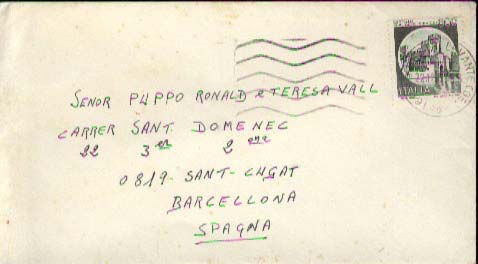 SENOR PUPPO RONALD & TERESA VALL
CARRER SANT DOMENEC
22 3er 2ona
0819- SANT-CUGAT
BARCELLONA
SPAGNA
ITALIA